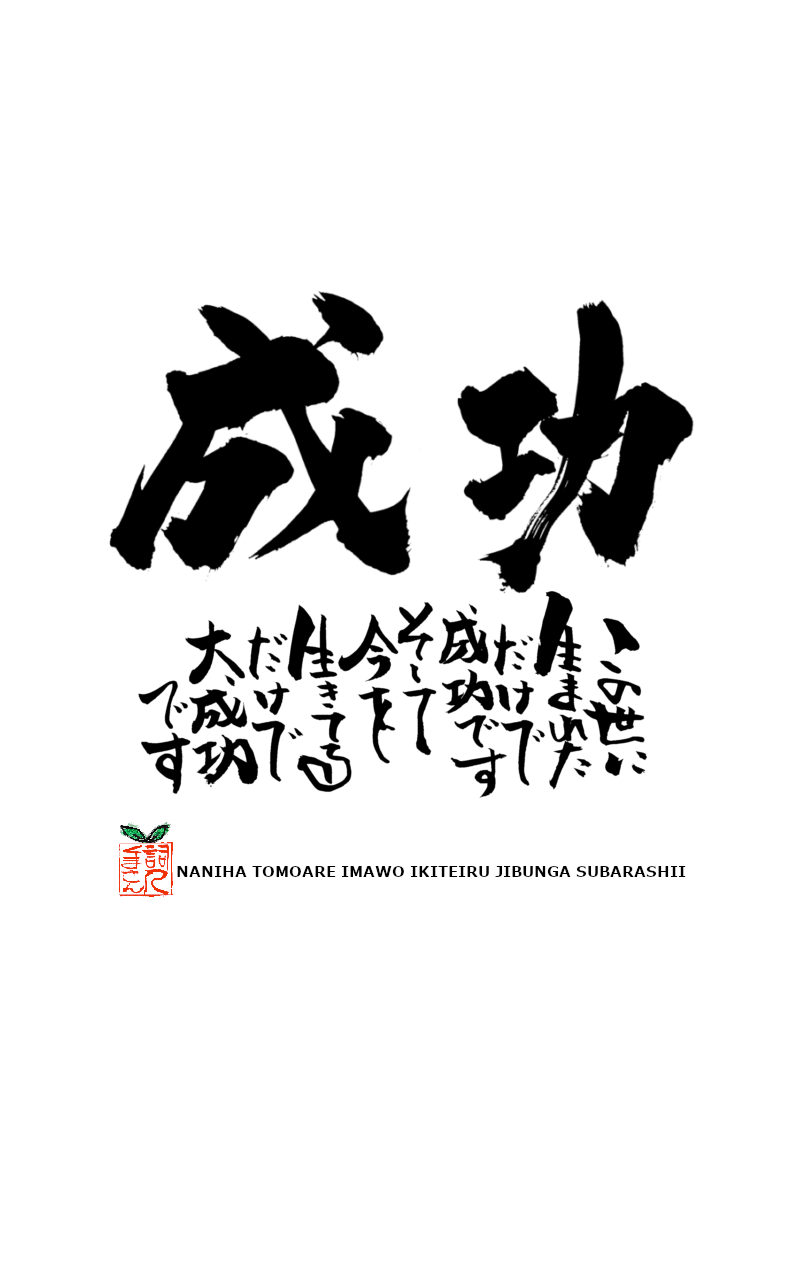 成功
この世に
生まれた
だけで
成功です
そして
今を
生きてる
だけで
大成功
です
NANIHA TOMOARE IMAWO IKITEIRU JIBUNGA SUBARASHII